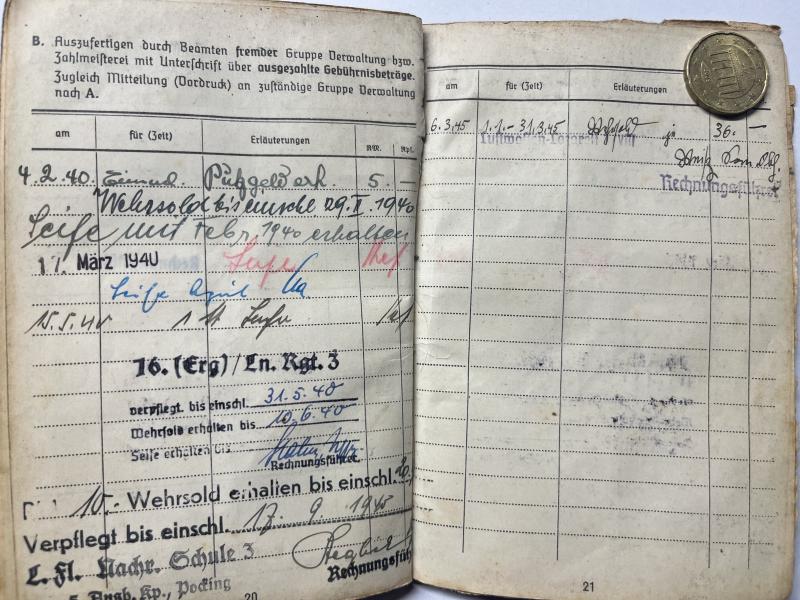 B. Auszufertigen durch Beamten fremder Gruppe Verwaltung bzw.
Zahlmeisterei mit Unterschrift über ausgezahlte Gebührnisbeträge.
Zugleich Mitteilung (Vordruck) an zuständige Gruppe Verwaltung
nach A.
am für (Zeit) Erläuterungen RM. Rpf.
4.2.40. Putzgeld erh. 5.
Wehrsold bis einschl. 29.II.1940
Seife mit Febr. 1940 erhalten
17. März 1940 Seife
Seife April
15.5.40 1 St Seife
16. (Erg)/Ln. Rgt. 3
verpflegt bis einschl. 31.5.40
Wehrsold erhalten bis 10.6.40
Seife erhalten bis
Rechnungsführer
10.- Wehrsold erhalten bis einschl.
Verpflegt bis einschl. 17.9.1940
L. Fl. Nachr. Schule 3
Rechnungsführer
5. Ausb. Kp., Pocking
20
am für (Zeit) Erläuterungen
6.3.45 1.1.-31.3.45 Wehrsold 36. —
Luftwaffen-Lazarett
Rechnungsführer
21